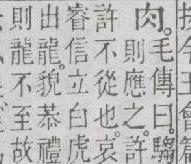 肉。毛傳曰。騶
則應之。許
許不從也。哀
睿信立白虎
出龍。貌恭禮
則龍不至故